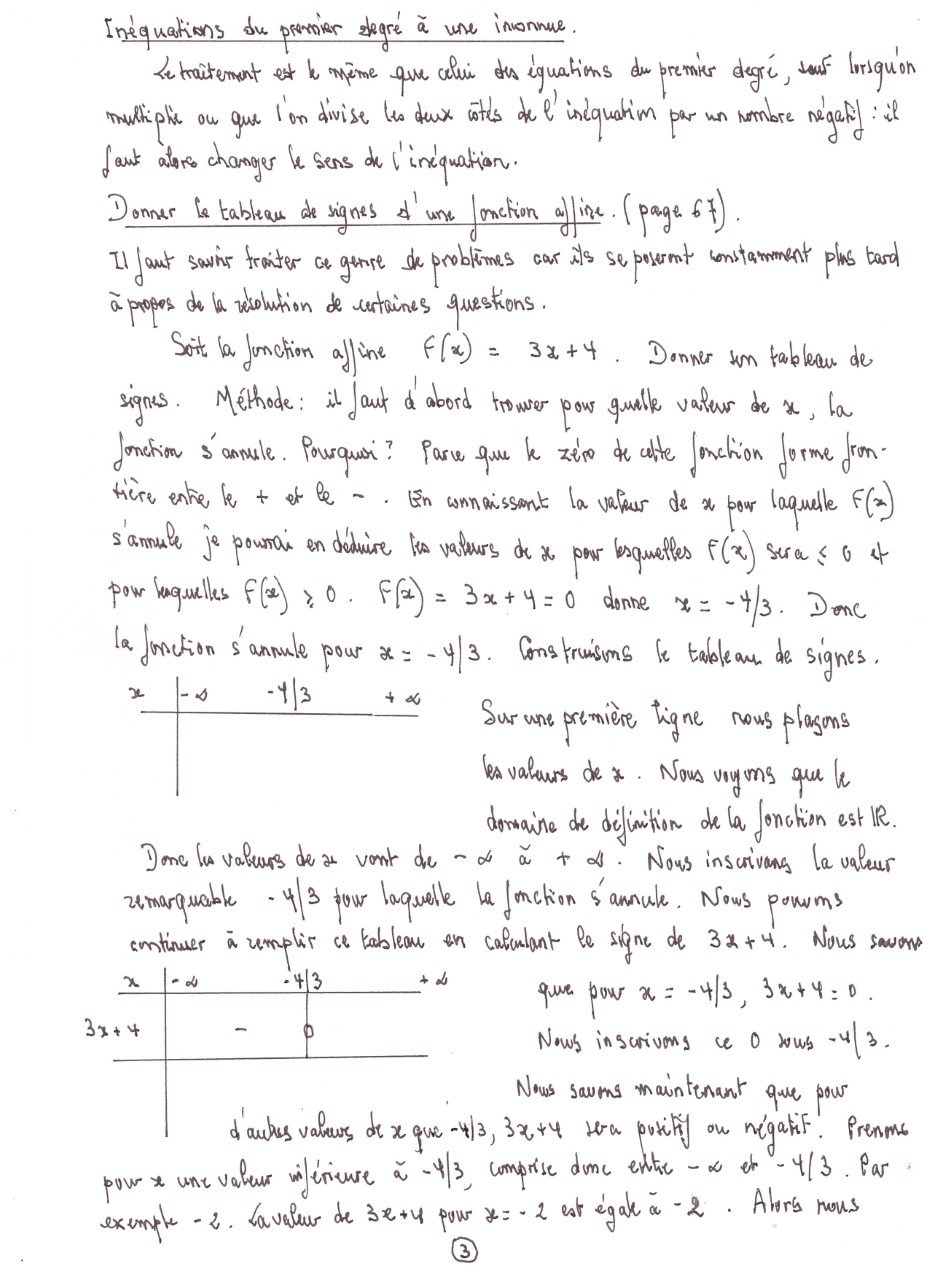 Inéquations du premier degré à une inconnue.
Le traitement est le même que celui des équations du premier degré, sauf lorsqu'on
multiplie ou que l'on divise les deux côtés de l'inéquation par un nombre négatif : il
faut alors changer le sens de l'inéquation.
Donner le tableau de signes d'une fonction affine. (page 67).
Il faut savoir traiter ce genre de problèmes car ils se poseront constamment plus tard
à propos de la résolution de certaines questions.
Soit la fonction affine F(x) = 3x+4. Donner son tableau de
signes. Méthode : il faut d'abord trouver pour quelle valeur de x, la
fonction s'annule. Pourquoi ? Parce que le zéro de cette fonction forme fron-
tière entre le + et le -. En connaissant la valeur de x pour laquelle F(x)
s'annule je pourrai en déduire les valeurs de x pour lesquelles F(x) sera ⩽ 0 et
pour lesquelles F(x) ⩾ 0. F(x) = 3x+4=0 donne x = -4/3. Donc
la fonction s'annule pour x = -4/3. Construisons le tableau de signes.
x -∞ -4/3 +∞
Sur une première ligne nous plaçons
les valeurs de x. Nous voyons que le
domaine de définition de la fonction est IR.
Donc les valeurs de x vont de -∞ à +∞. Nous inscrivons la valeur
remarquable -4/3 pour laquelle la fonction s'annule. Nous pouvons
continuer à remplir ce tableau en calculant le signe de 3x+4. Nous savons
x -∞ -4/3 +∞
3x+4 - 0
que pour x = -4/3, 3x+4=0.
Nous inscrivons ce 0 sous -4/3.
Nous savons maintenant que pour
d'autres valeurs de x que -4/3, 3x+4 sera positif ou négatif. Prenons
pour x une valeur inférieure à -4/3, comprise donc entre -∞ et -4/3. Par
exemple -2. La valeur de 3x+4 pour x=-2 est égale à -2. Alors nous
3